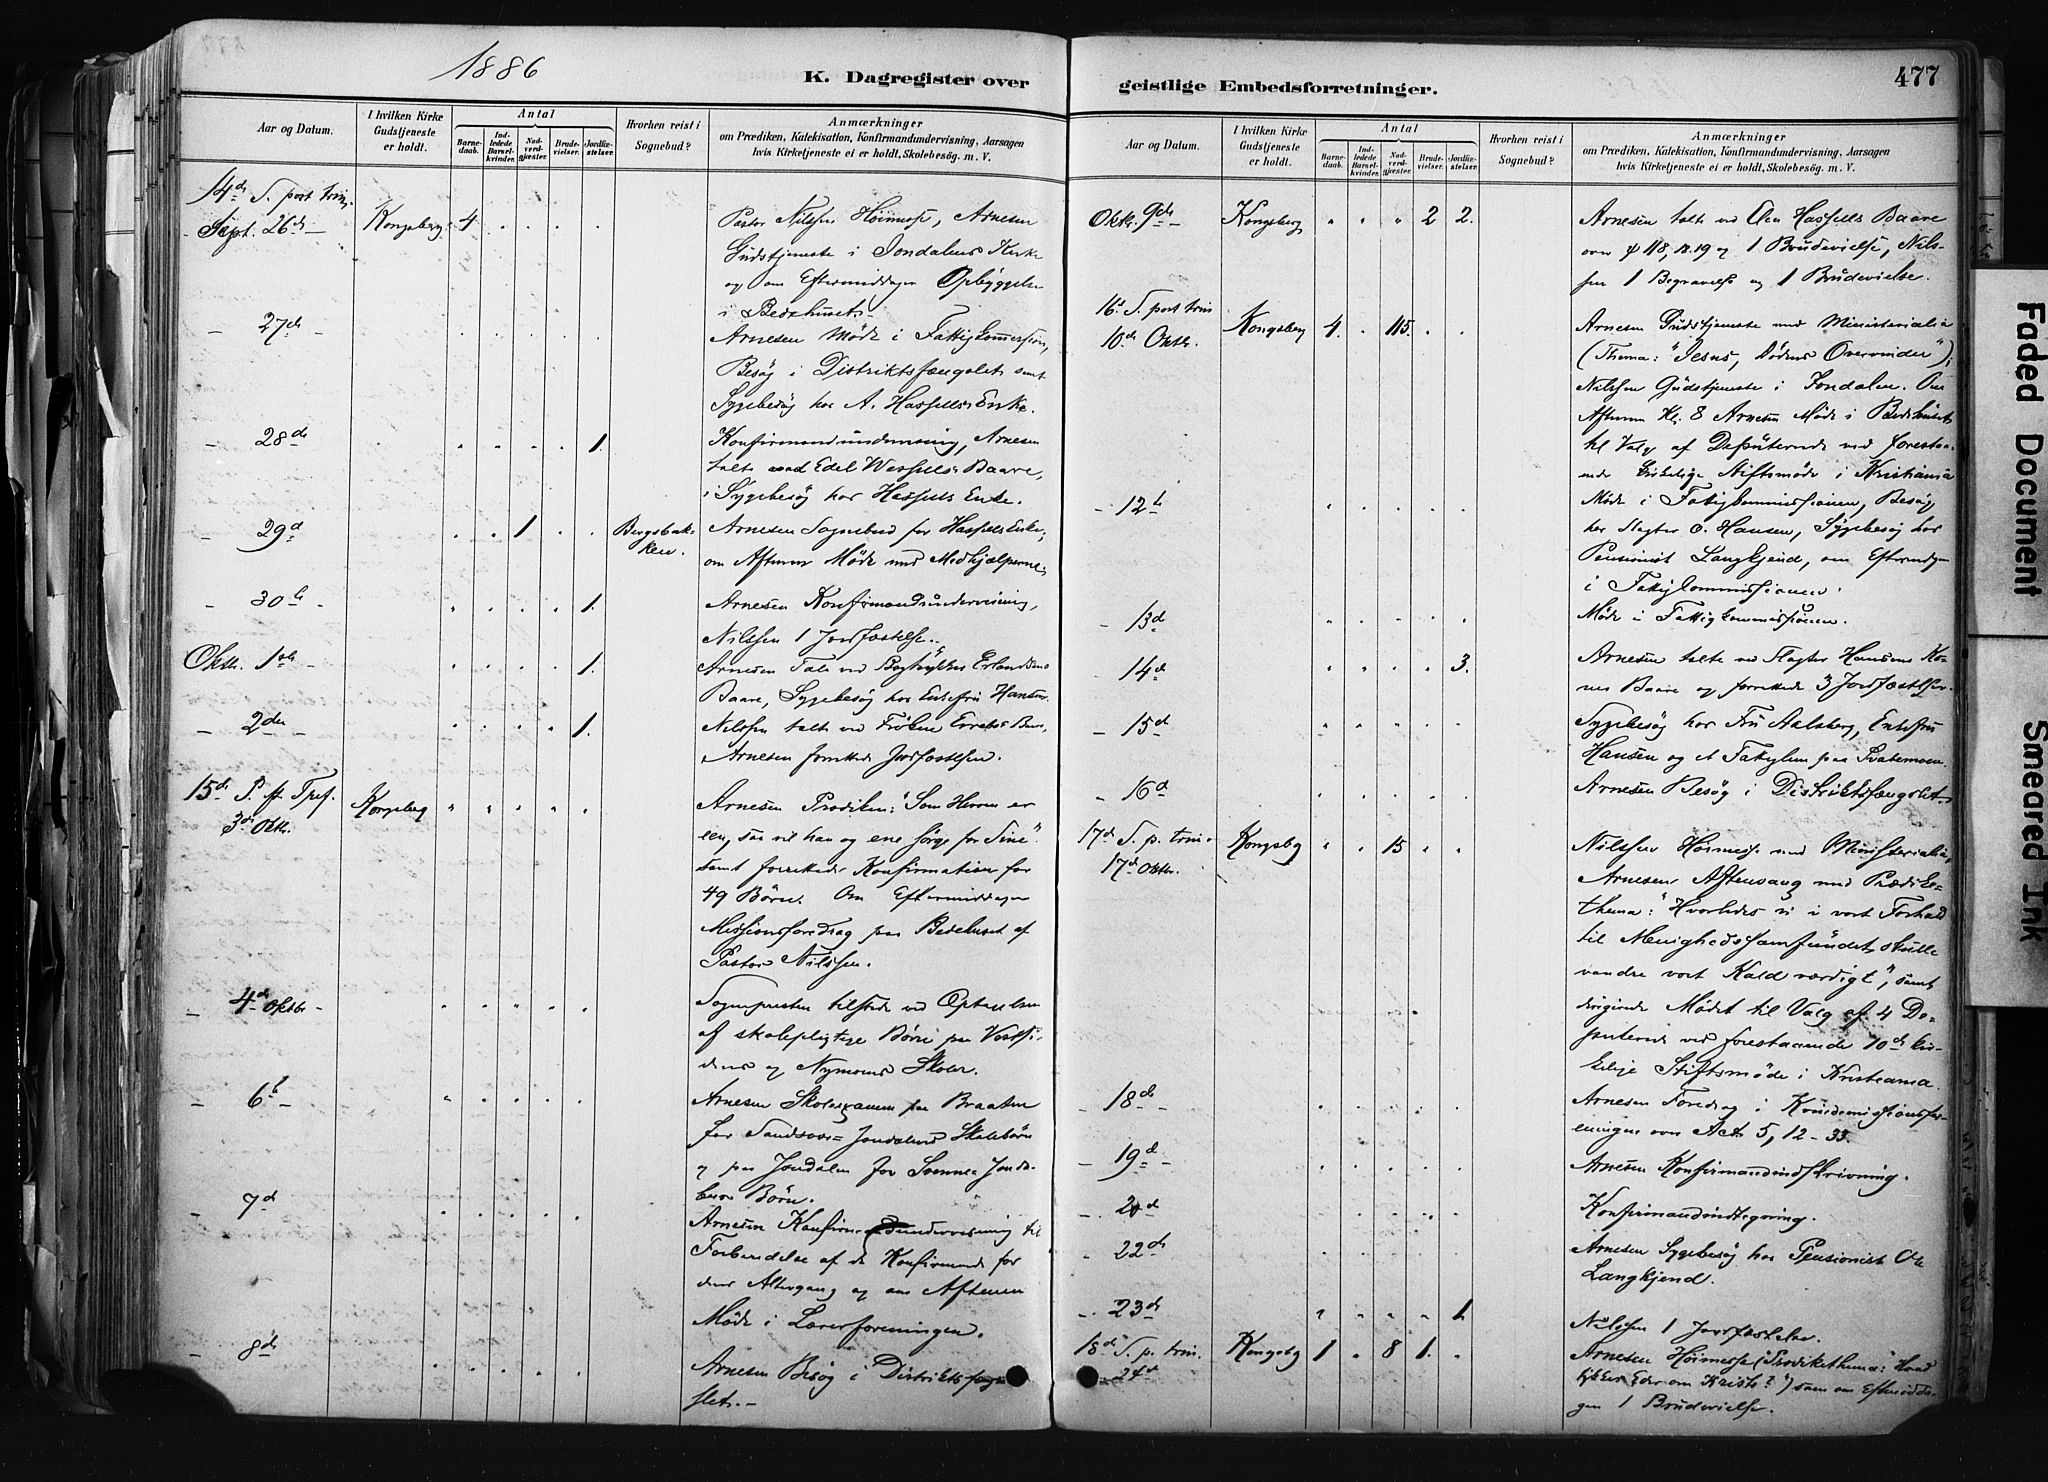 1886
K. Dagregister over
Aar og Datum.
I hvilken Kirke Gudstjeneste er holdt.
Antal
Barnedaab.
Indledede Barselkvinder.
Nadverdgjæster.
Brudevielser.
Jordfæstelser.
Hvorhen reist i Sognebud?
Anmærkninger
om Prædiken, Katekisation, Konfirmandundervisning, Aarsagen
hvis Kirketjeneste ei er holdt, Skolebesøg. m. V.
14de S. post trin.
Sept. 26de Kongsberg 4
Pastor Nilssen Høimesse, Arnesen
Gudstjeneste i Jondalens Kirke
og om Eftermiddagen Opbyggelse
i Bedehuset.
- 27de
Arnesen Møde i Fattigkommission,
Besøg i Distriktsfængslet samt
Sygebesøg hos A. Hassels Enke.
- 28de 1.
Konfirmandundervisning, Arnesen
talte ved Edel Wessels Baare,
i Sygebesøg hos Hassels Enke.
- 29de 1 Bergsbakken.
Arnesen Sognebud for Hassels Enke,
om Aftenen Møde med Medhjælperne.
- 30te - 1.
Arnesen Konfirmandundervisning,
Nilssen 1 Jordfæstelse.
Oktbr. 1ste - 1.
Arnesen Tale ved Erlandsens
Baare, Sygebesøg hos Enkefru Hansen.
- 2den 1.
Nilssen talte ved Frøken
Arnesen forrettede Jordfæstelsen.
15de
3de Oktbr. Kongsberg
Arnesen Prædiken: "Som Herren er
een, saa vil han og ene sørge for Sine"
samt forrettede Konfirmation for
49 Børn. Om Eftermiddagen
Missionsforedrag paa Bedehuset af
Pastor Nilssen.
- 4de Oktbr -
Sognepresten tilstede ved Optagelsen
af skolepligtige Børn paa Vestsidens
og Nymoens Skoler.
- 6te -
Arnesen Skoleexamen paa Braaten
for Sandsvær-Jondalens Skolebørn
og paa Jondalen for Svennes
Børn.
- 7de
Arnesen Konfirmandundervisning til
Forberedelse af de Konfirmerede for
deres Altergang og om Aftenen
Møde i Lærerforeningen.
- 8de
Arnesen Besøg i Distriktsfængslet.
geistlige Embedsforretninger.
477
Aar og Datum.
I hvilken Kirke Gudstjeneste er holdt.
Antal
Barnedaab.
Indledede Barselkvinder.
Nadverdgjæster.
Brudevielser.
Jordfæstelser.
Hvorhen reist i Sognebud?
Anmærkninger
om Prædiken, Katekisation, Konfirmandundervisning, Aarsagen
hvis Kirketjeneste ei er holdt, Skolebesøg. m. V.
Oktbr. 9de - Kongsberg 2 2.
Arnesen talte ved Elen Hassels Baare
over ψ 118, 18.19 og 1 Brudevielse, Nilssen
1 Begravelse og 1 Brudevielse.
16de S. post trin
10de Oktbr. Kongsberg 4. 115.
Arnesen Gudstjeneste med Ministerialia
(Thema: "Jesus, Dødens Overvinder");
Nilssen Gudstjeneste i Jondalen. Om
Aftenen Kl. 8 Arnesen Møde i Bedehuset
til Valg af Deputerede ved forestaaende
kirkelige Stiftsmøde i Kristiania
- 12te
Møde i Fattigkommissionen, Besøg
hos Slagter O. Hansen, Sygebesøg hos
Pensionist Langkjend, om Eftermdgen
i Fattigkommissionen.
- 13de
Møde i Fattigkommissionen.
- 14de 3.
Arnesen talte ved Slagter Hansens Kones
Baare og forrettede 3 Jordfæstelser.
- 15de
Sygebesøg hos Fru Aalsberg, Enkefru
Hansen og et Fattiglem paa Svartemoen.
- 16de
Arnesen Besøg i Distriktsfængslet.
17de S. p. trin.
17de Oktbr. Kongsbg 15
Nilssen Høimesse med Ministerialia,
Arnesen Aftensang med Prædikethema:
"Hvorledes vi i vort Forhold
til Menighedssamfundet skulle
vandre vort Kald værdigt", samt
dirigerede Mødet til Valg af 4 Deputerede
ved forestaaende 10de kirkelige
Stiftsmøde i Kristiania.
- 18de -
Arnesen Foredrag i Kvindemissionsforeningen
over Act. 5, 12-33.
- 19de -
Arnesen Konfirmandindskrivning.
- 20de
Konfirmandindtegning.
- 22de
Arnesen Sygebesøg hos Pensionist Ole
Langkjend.
- 23de 1.
Nilssen 1 Jordfæstelse.
18de S. p. trin.
24de Kongsbg 1 8 1.
Arnesen Høimesse (Prædikethema: "Hvad
tykkes Eder om Kristo?") samt om Eftermiddagen
1 Brudevielse.
Faded Document
Smeared Ink